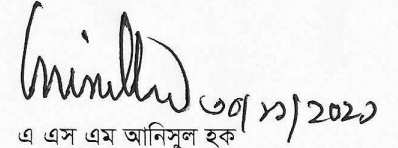 ৩০/১১/২০২১
এ এস এম আনিসুল হক